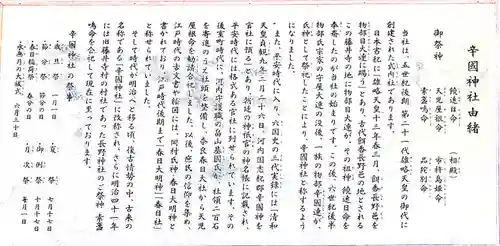 辛國神社由緒
御祭神
饒速日命
天児屋根命
素盞嗚命
(相殿)
市杵島姫命
品陀別命
当社は、五世紀後期、第二十一代雄略天皇の御代に
創建された式内社であります。
日本書紀に「雄略天皇十三年春三月、餌香長野邑を
物部目大連に賜う」とあり、古代餌香長野邑の地とされる
この藤井寺の地に物部目大連が、その祖神饒速日命を
奉斎したのが当社の始まりです。この後、六世紀後半
物部氏宗家の守屋大連の没後、一族の物部辛國連が、
氏神として祭祀したことにより、辛國神社と称するよう
になりました。
また、平安時代に入り、六国史の三代実録には「清和
天皇貞観九年二月二十六日、河内国志紀郡辛國神を
官社に預る」とあり、朝廷の神祇官の神名帳に記載され、
平安時代には格式ある官社に列せられています。その
後室町時代に、河内守護職の畠山基國氏が、社領二百石
を寄進のうえ社頭を整備し、奈良春日大社から天児
屋根命を勧請合祀しました。以後、庶民の信仰を集め、
江戸時代の古文書や絵図には、岡村氏神「春日大明神」と
書かれており、江戸時代後期まで「春日大明神」「春日社」
と称せられていました。
そして時代が明治へと移る頃、復古情勢の中、古来の
名称である「辛國神社」に改称され、さらに明治四十一年
には旧藤井寺村の村社であった長野神社のご祭神 素盞
嗚命を合祀して現在に至っております。
辛國神社の祭事
歳旦祭 一月一日
節分祭 節分の日
春日稲荷祭 春分の日
夏越の大祓式 六月三十日
夏祭
例祭 十月十七日
月次祭 毎月一日